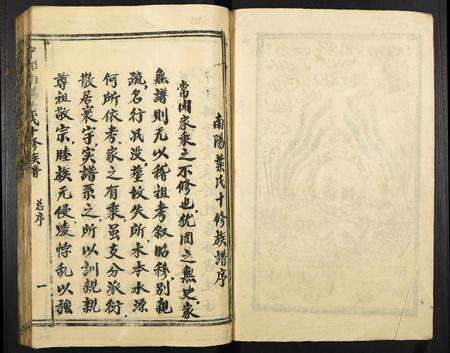 南陽葉氏十修族譜序
常聞家乘之不修也犹國之無史家
無譜則无以稽祖考叙昭穆別親
疏名行泯没塋坟失所水木本源
何所依考家之有乘虽支分派衍
散居寰宇实譜系之所以訓親親
尊祖敬宗睦族无侵凌悖乱以強
氏十修族譜
总序
一